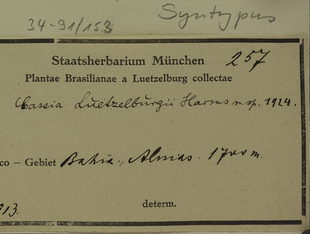 34-91/153 Syntypus
Staatsherbarium München 257
Plantae Brasilianae a Luetzelburg collectae
Cassia Luetzelburgii Harms n sp. 1924.
co – Gebiet Bahia, Almas. 1700 m.
913. determ.